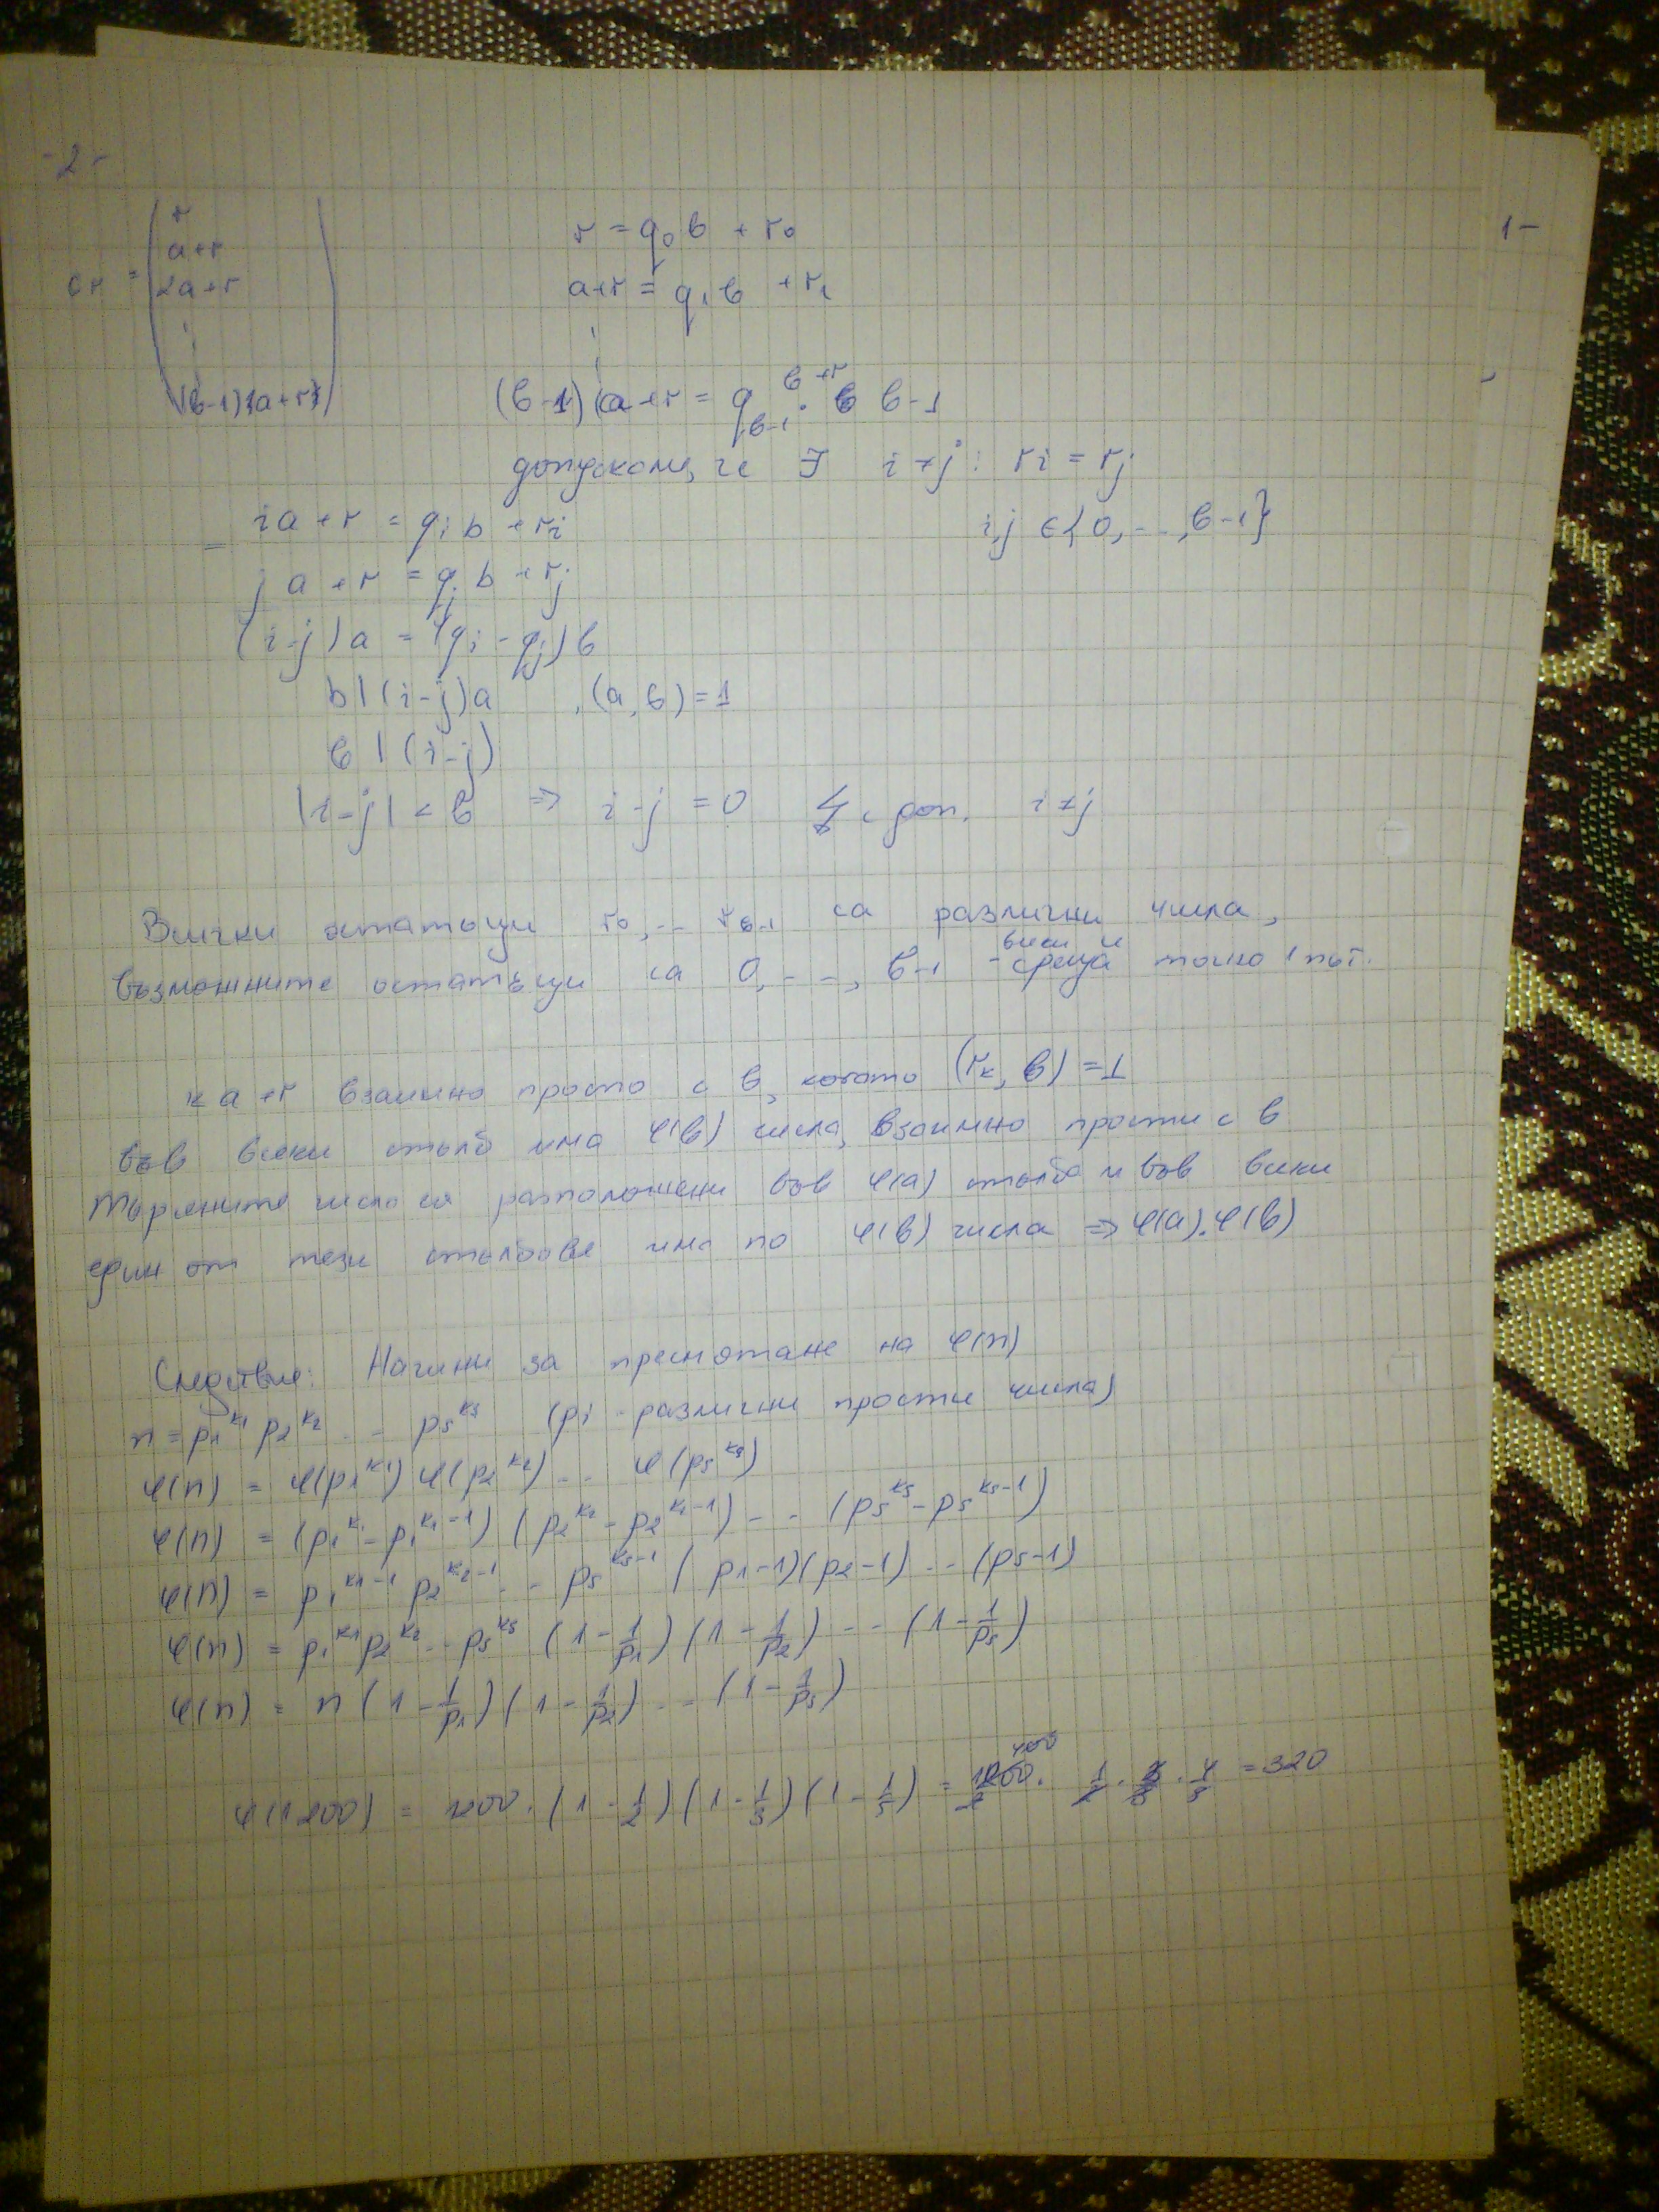 -2-
r
a+r
cr = 2a+r
⋮
(b-1)(a+r)
r = q₀b + r₀
a+r = q₁b + r₁
⋮
(b-1)(a+r = q_{b-1}·b + r_{b-1}
допускаме, че ∃ i≠j : ri = rj
i,j ∈{0,...,b-1}
ia+r = qib + ri
ja+r = qjb + rj
(i-j)a = (qi-qj)b
b|(i-j)a , (a,b)=1
b|(i-j)
|i-j| < b ⇒ i-j = 0 ↯ с доп. i≠j
Всички остатъци r₀,... r_{b-1} са различни числа,
възможните остатъци са 0,..., b-1 - всеки се среща точно 1 път.
ка+r взаимно просто с b, когато (rк, b)=1
във всеки стълб има φ(b) числа, взаимно прости с b
Търсените числа са разположени във φ(a) стълба и във всеки
един от тези стълбове има по φ(b) числа ⇒ φ(a).φ(b)
Следствие: Начини за пресмятане на φ(n)
n = p₁^{k₁} p₂^{k₂} ... ps^{ks} (pi - различни прости числа)
φ(n) = φ(p₁^{k₁}) φ(p₂^{k₂}) ... φ(ps^{ks})
φ(n) = (p₁^{k₁} - p₁^{k₁-1}) (p₂^{k₂} - p₂^{k₂-1}) ... (ps^{ks} - ps^{ks-1})
φ(n) = p₁^{k₁-1} p₂^{k₂-1} ... ps^{ks-1} (p₁-1)(p₂-1) ... (ps-1)
φ(n) = p₁^{k₁} p₂^{k₂} ... ps^{ks} (1-1/p₁)(1-1/p₂) ... (1-1/ps)
φ(n) = n(1-1/p₁)(1-1/p₂) ... (1-1/ps)
φ(1200) = 1200.(1-1/2)(1-1/3)(1-1/5) = 1200. 400 1/2 . 2/3 . 4/5 = 320
1-